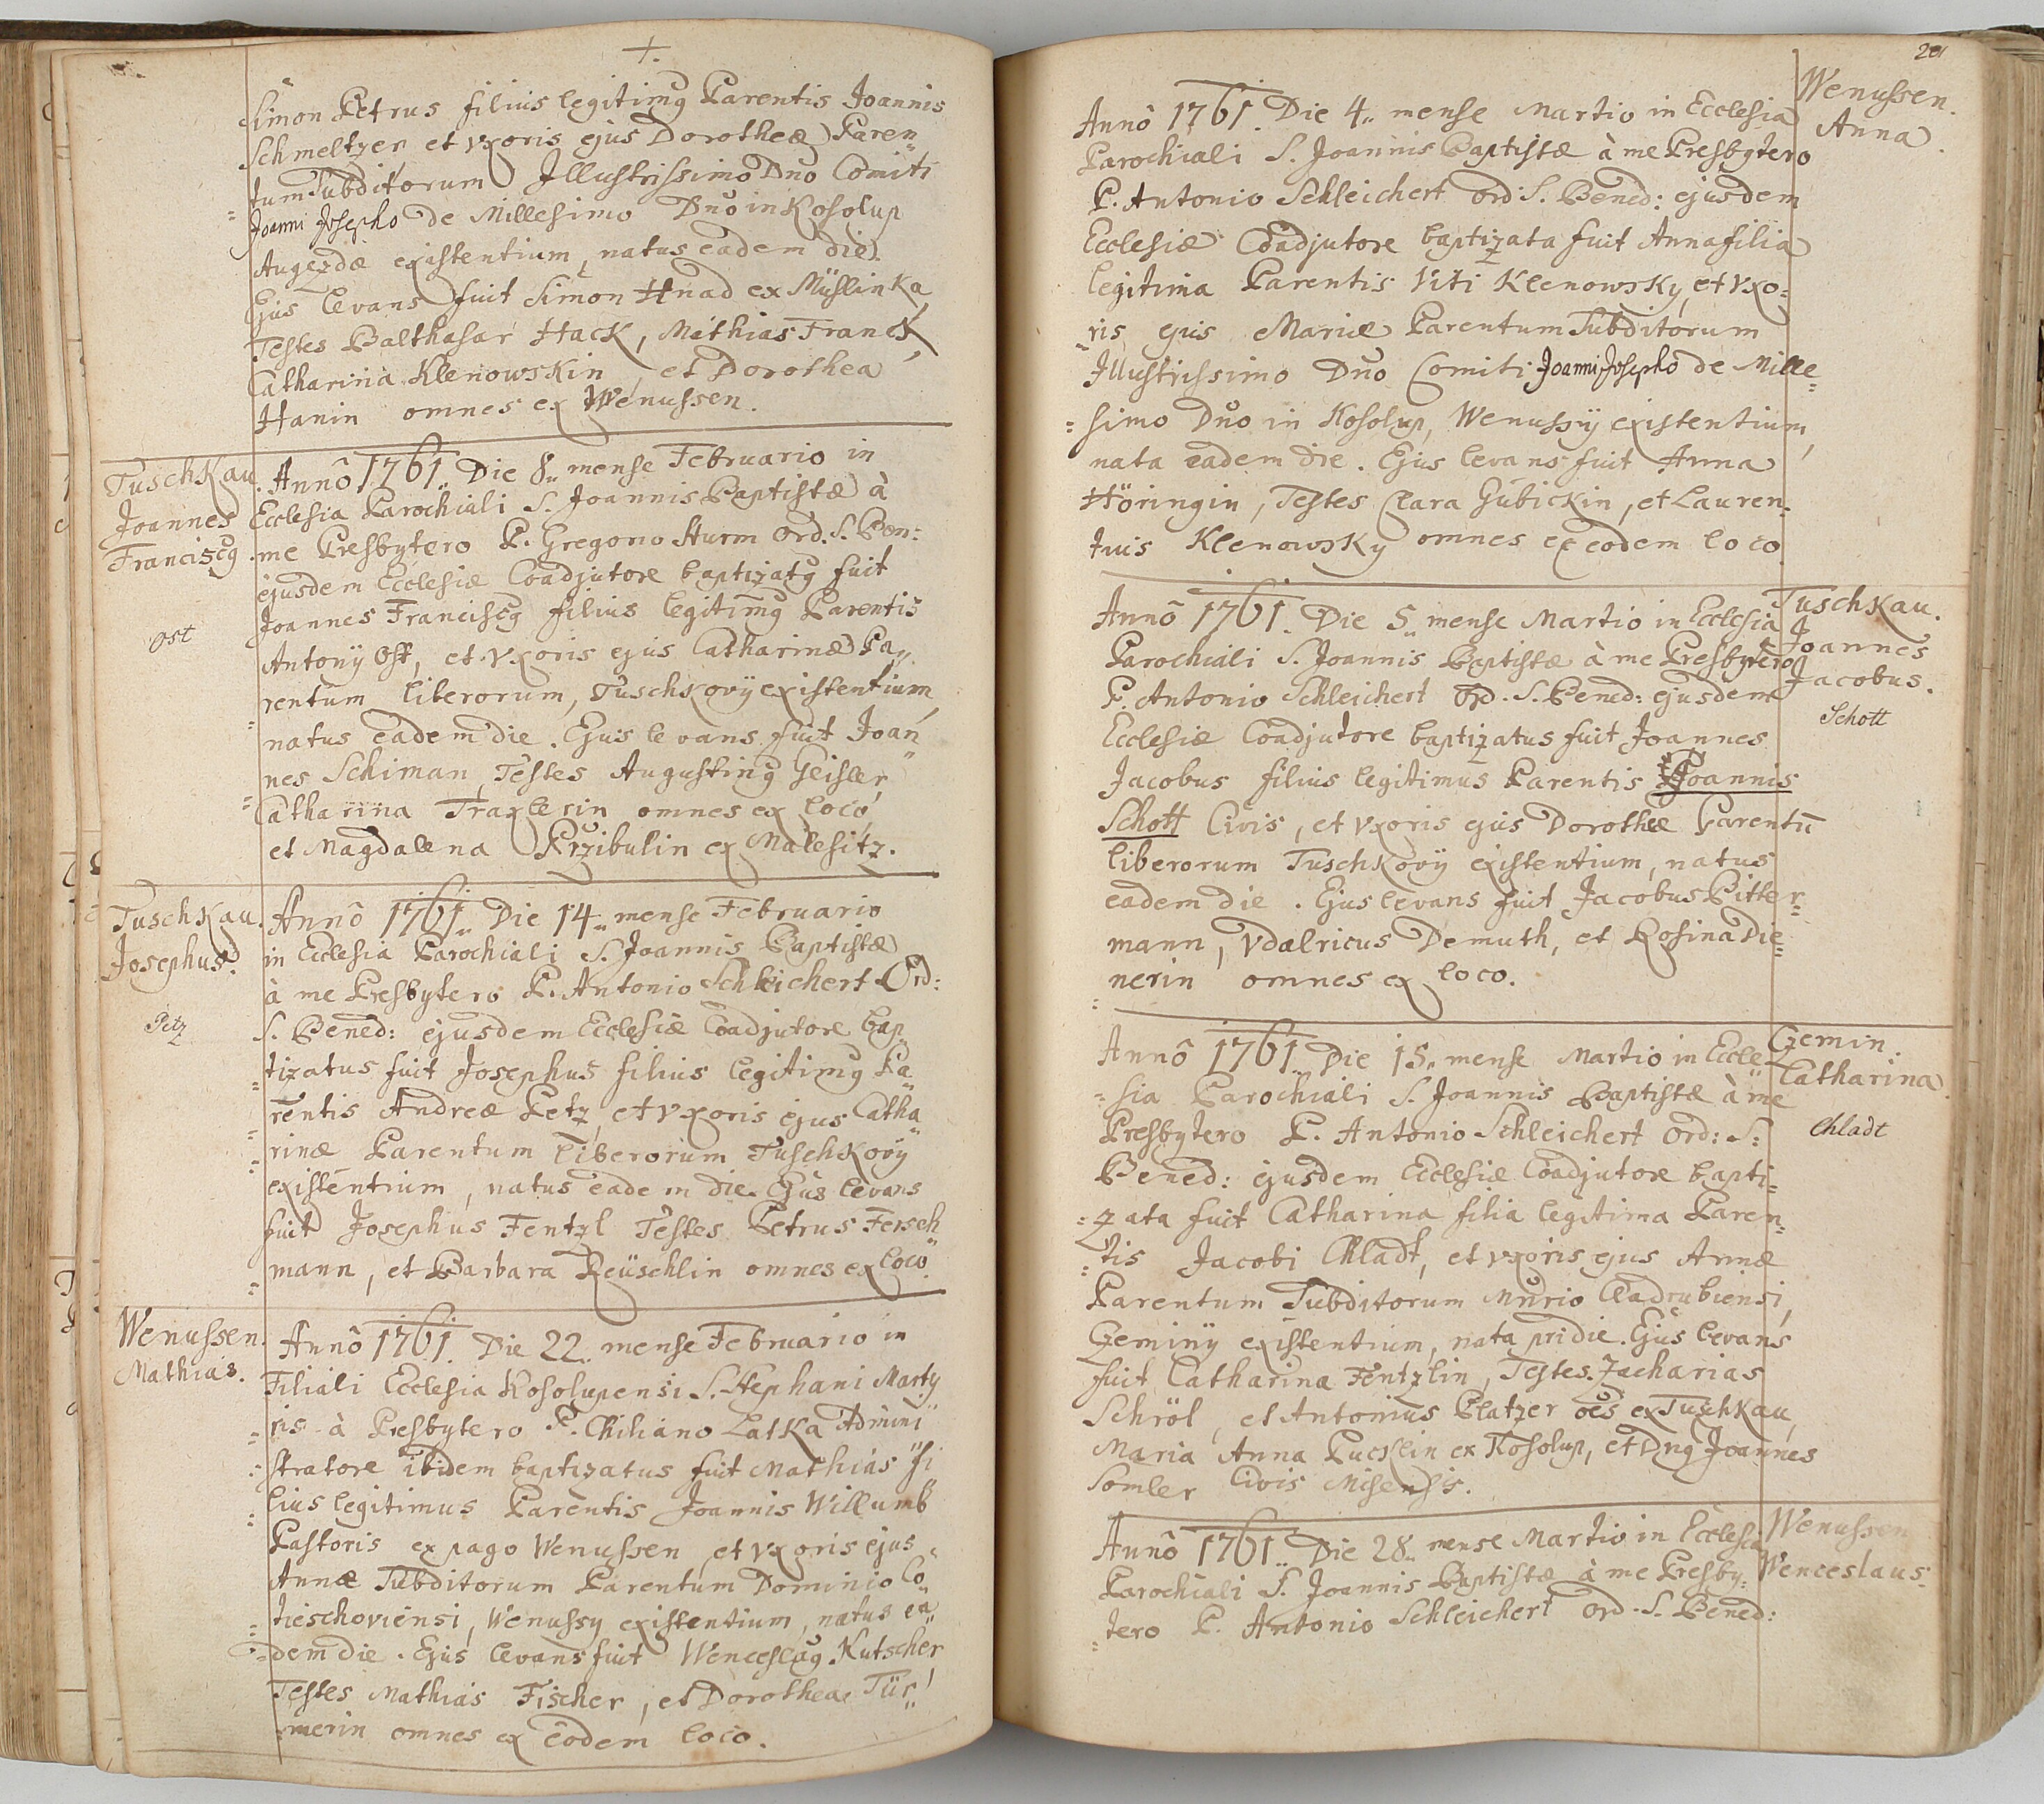 +.
Simon Petrus filius legitimg Parentis Joannis
Schmeltzer et Vxoris ejus Dorotheæ Paren„
tum Subditorum Jllustrissimo Dno Comiti
Joanni Josepho de Millesimo Dno in Kosolup
Augezdæ existentium, natus eadem die.
Ejus levans fuit Simon Hnad ex Müslinka,
Testes Balthasar Hack, Mathias Franck,
Catharina Klenowskin, et Dorothea
Hanin omnes ex Wenussen.
Tuschkau.
Joannes
Franciscg.
Ost
Annô 1761„ Die 8„ mense Februario in
Ecclesia Parochiali S. Joannis Baptistæ à
me Presbytero P. Gregorio Sturm Ord. S. Ben:
ejusdem Ecclesiæ Coadjutore baptizatg fuit
Joannes Franciscg filius legitimg Parentis
Antonÿ Ost, et Vxoris ejus Catharinæ Pa„
rentum liberorum, Tuschkovÿ existentium,
natus eadem die. Ejus levans fuit Joan„
nes Schiman, Testes Augusting Geisler,
Catharina Traxlerin omnes ex loco,
et Magdalena Przibulin ex Malesitz.
Tuschkau.
Josephus.
Petz
Annô 1761„ Die 14„ mense Februario
in Ecclesia Parochiali S. Joannis Baptistæ
à me Presbytero P. Antonio Schleichert Ord:
S. Bened: ejusdem Ecclesiæ Coadjutore bap„
tizatus fuit Josephus filius legitimg Pa„
rentis Andreæ Petz, et Vxoris ejus Catha„
rinæ Parentum liberorum Tuschkovÿ
existentium, natus eadem die. Ejus levans
fuit Josephus Fentzl Testes Petrus Fersch„
mann, et Barbara Reüschlin omnes ex loco.
Wenussen.
Mathias.
Annô 1761. Die 22„ mense Februario in
Filiali Ecclesia Kosolupensi S. Stephani Marty„
ris à Presbytero P. Chiliano Latka Admini„
stratore ibidem baptizatus fuit Mathias fi„
lius legitimus Parentis Joannis Willumb
Pastoris ex pago Wenussen et Vxoris ejus
Annæ Subditorum Parentum Dominio Co„
tieschoviensi, Wenussy existentium, natus ea„
dem die. Ejus levans fuit Wenceslag Kutscher
Testes Mathias Fischer, et Dorothea Tür„
merin omnes ex eodem loco.
201
Wenussen.
Anna.
Annô 1761. Die 4„ mense Martio in Ecclesia
Parochiali S. Joannis Baptistæ à me Presbytero
P. Antonio Schleichert Ord: S. Bened: ejusdem
Ecclesiæ Coadjutore baptizata fuit Anna filia
legitima Parentis Viti Klenowsky, et Vxo=
ris ejus Mariæ Parentum Subditorum
Jllustrissimo Dno Comiti Joanni Josepho de Mille=
simo Dno in Kosolup, Wenussÿ existentium,
nata eadem die. Ejus levans fuit Anna
Höringin, Testes Clara Gubickin, et Lauren„
tius Klenowsky omnes ex eodem loco
Tuschkau.
Joannes
Jacobus.
Schott
Annô 1761. Die 5„ mense Martio in Ecclesia
Parochiali S. Joannis Baptistæ à me Presbytero
P. Antonio Schleichert Ord. S. Bened: ejusdem
Ecclesiæ Coadjutore baptizatus fuit Joannes
Jacobus filius legitimus Parentis Joannis
Schott Civis, et Vxoris ejus Dorotheæ Parentū
liberorum Tuschkovÿ existentium, natus
eadem die. Ejus levans fuit Jacobus Pitter=
mann, Vdalricus Demuth, et Rosina Die=
nerin omnes ex loco.
Czemin.
Catharina.
Chladt
Annô 1761„ Die 15„ mense Martio in Eccle„
sia Parochiali S. Joannis Baptistæ à me
Presbytero P. Antonio Schleichert Ord: S:
Bened: ejusdem Ecclesiæ Coadjutore bapti=
zata fuit Catharina filia legitima Paren„
tis Jacobi Chladt, et Vxoris ejus Annæ
Parentum Subditorum Mnrio Cladrubiensi,
Czeminÿ existentium, nata pridie. Ejus levans
fuit Catharina Fentzlin, Testes. Zacharias
Schröl, et Antonius Platzer oes ex Tuschkau,
Maria Anna Pucklin ex Kosolup, et Dng Joannes
Somler Civis Misensis.
Wenussen
Wenceslaus.
Annô 1761„ Die 28„ mense Martio in Ecclesia
Parochiali S. Joannis Baptistæ à me Presby=
tero P. Antonio Schleichert Ord. S. Bened: